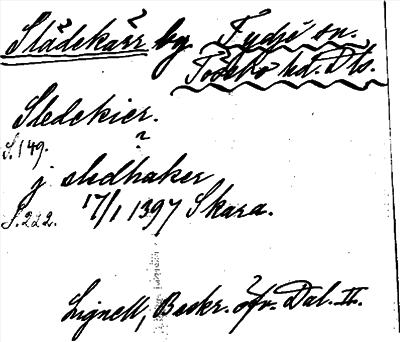 Slädekärr by. Fydiö sn.
Tössbo hd. Dls.
Sledekier.
S. 149. ?
j sledhaker
S. 222. 17/1 1397 Skara.
Lignell, Beskr. öfv. Dal. II.